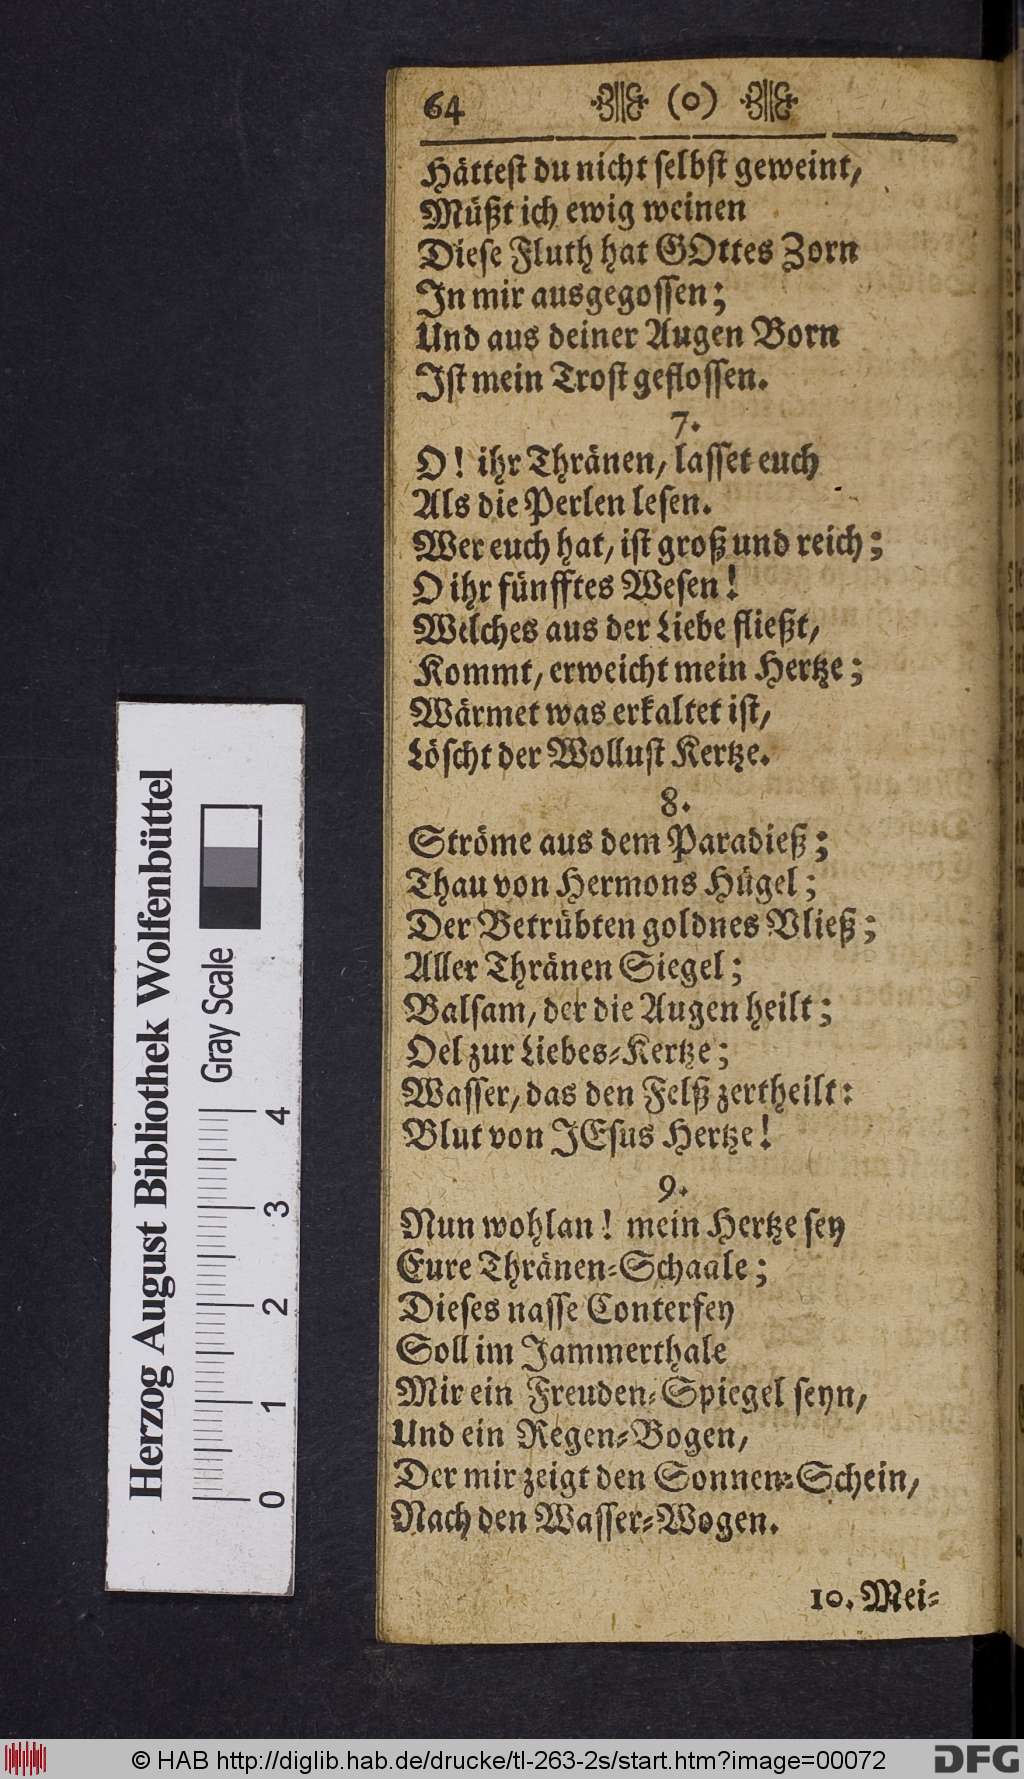 64 (o)
Hättest du nicht selbst geweint,
Müßt ich ewig weinen
Diese Fluth hat GOttes Zorn
In mir ausgegossen;
Und aus deiner Augen Born
Ist mein Trost geflossen.
7.
O! ihr Thränen, lasset euch
Als die Perlen lesen.
Wer euch hat, ist groß und reich;
O ihr fünfftes Wesen!
Welches aus der Liebe fließt,
Kommt, erweicht mein Hertze;
Wärmet was erkaltet ist,
Löscht der Wollust Kertze.
8.
Ströme aus dem Paradieß;
Thau von Hermons Hügel;
Der Betrübten goldnes Vließ;
Aller Thränen Siegel;
Balsam, der die Augen heilt;
Oel zur Liebes-Kertze;
Wasser, das den Felß zertheilt:
Blut von JEsus Hertze!
9.
Nun wohlan! mein Hertze sey
Eure Thränen-Schaale;
Dieses nasse Conterfey
Soll im Jammerthale
Mir ein Freuden-Spiegel seyn,
Und ein Regen-Bogen,
Der mir zeigt den Sonnen-Schein,
Nach den Wasser-Wogen.
10. Mei-
Herzog August Bibliothek Wolfenbüttel
Gray Scale
0 1 2 3 4
© HAB http://diglib.hab.de/drucke/tl-263-2s/start.htm?image=00072
DFG